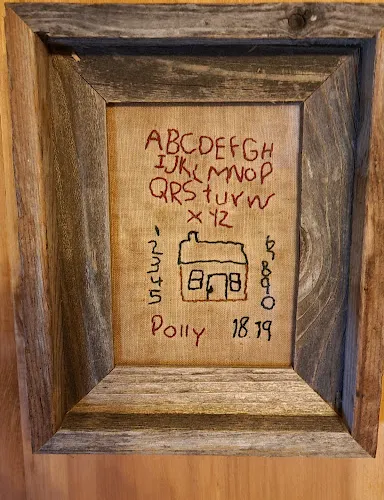 ABCDEFGH
IJKLMNOP
QRStUVW
XYZ
1
2
3
4
5
6
7
8
9
0
Polly 1839